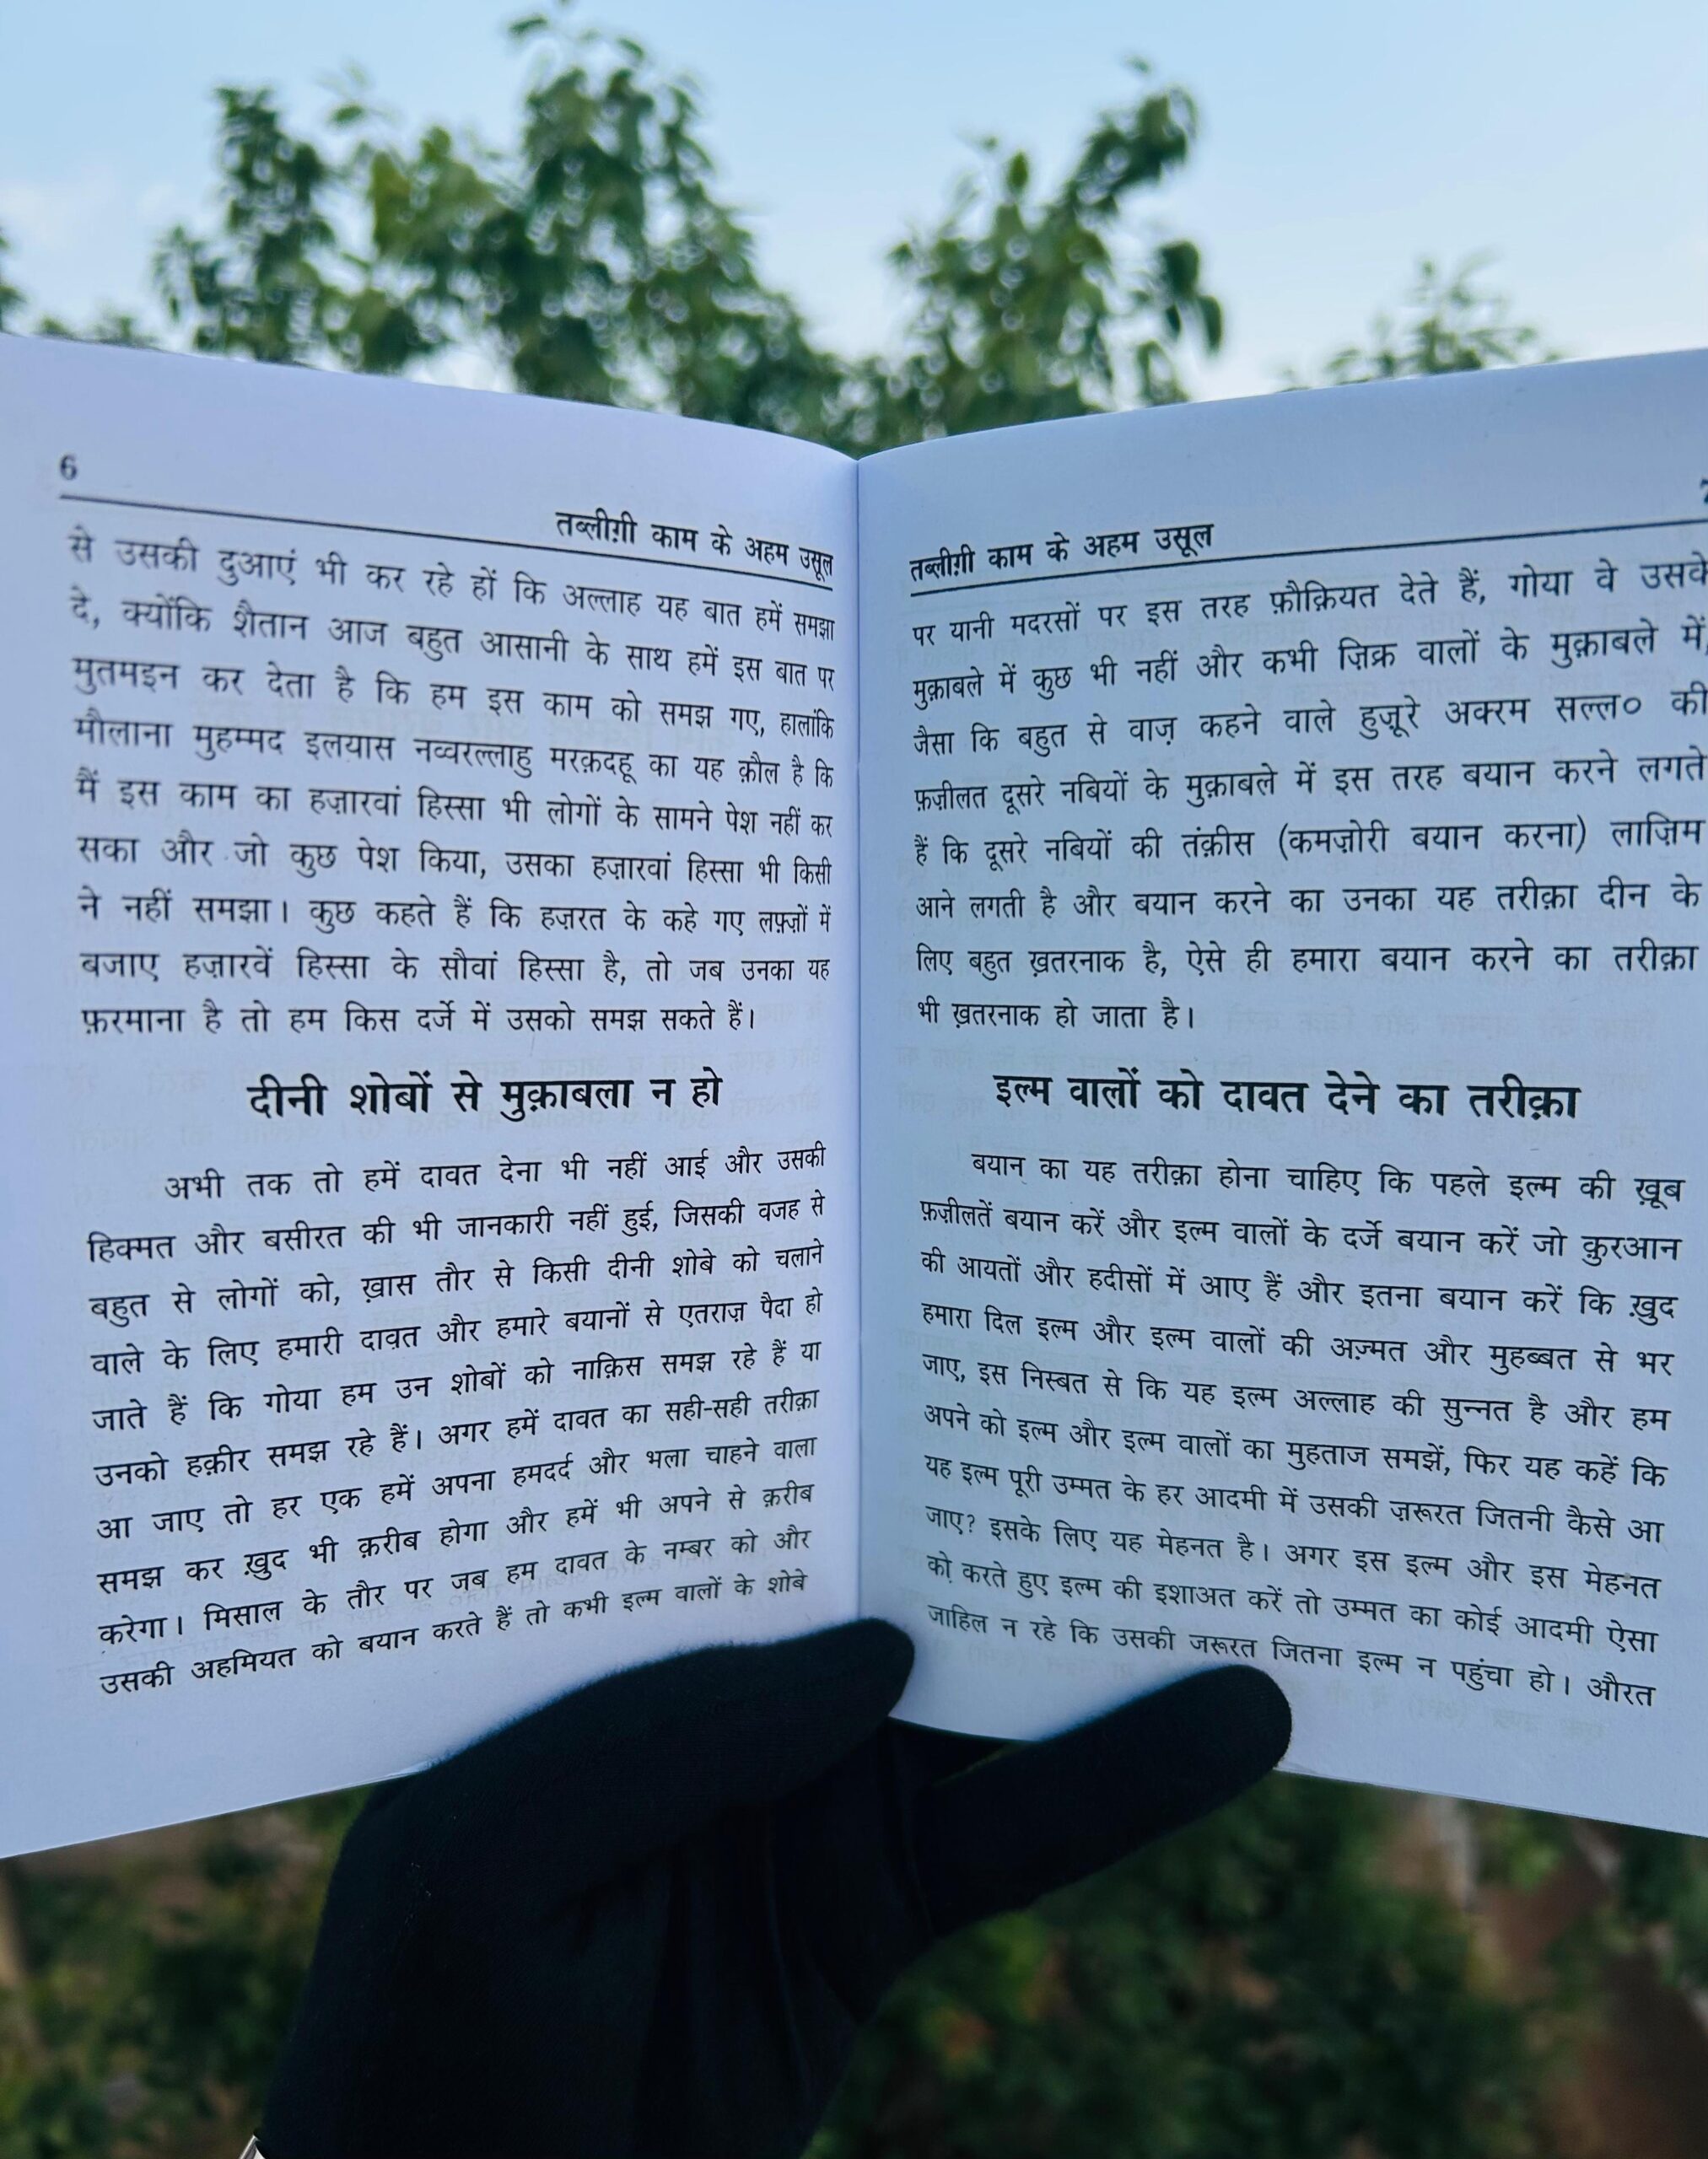 6
तब्लीग़ी काम के अहम उसूल
से उसकी दुआएं भी कर रहे हों कि अल्लाह यह बात हमें समझा
दे, क्योंकि शैतान आज बहुत आसानी के साथ हमें इस बात पर
मुतमइन कर देता है कि हम इस काम को समझ गए, हालांकि
मौलाना मुहम्मद इलयास नव्वरल्लाहु मरक़दहू का यह क़ौल है कि
मैं इस काम का हज़ारवां हिस्सा भी लोगों के सामने पेश नहीं कर
सका और जो कुछ पेश किया, उसका हज़ारवां हिस्सा भी किसी
ने नहीं समझा। कुछ कहते हैं कि हज़रत के कहे गए लफ़्ज़ों में
बजाए हज़ारवें हिस्सा के सौवां हिस्सा है, तो जब उनका यह
फ़रमाना है तो हम किस दर्जे में उसको समझ सकते हैं।
दीनी शोबों से मुक़ाबला न हो
अभी तक तो हमें दावत देना भी नहीं आई और उसकी
हिक्मत और बसीरत की भी जानकारी नहीं हुई, जिसकी वजह से
बहुत से लोगों को, ख़ास तौर से किसी दीनी शोबे को चलाने
वाले के लिए हमारी दाव़त और हमारे बयानों से एतराज़ पैदा हो
जाते हैं कि गोया हम उन शोबों को नाक़िस समझ रहे हैं या
उनको हक़ीर समझ रहे हैं। अगर हमें दावत का सही-सही तरीक़ा
आ जाए तो हर एक हमें अपना हमदर्द और भला चाहने वाला
समझ कर ख़ुद भी क़रीब होगा और हमें भी अपने से क़रीब
करेगा। मिसाल के तौर पर जब हम दावत के नम्बर को और
उसकी अहमियत को बयान करते हैं तो कभी इल्म वालों के शोबे
तब्लीग़ी काम के अहम उसूल
पर यानी मदरसों पर इस तरह फ़ौक़ियत देते हैं, गोया वे उसके
मुक़ाबले में कुछ भी नहीं और कभी ज़िक्र वालों के मुक़ाबले में,
जैसा कि बहुत से वाज़ कहने वाले हुज़ूरे अक्रम सल्ल० की
फ़ज़ीलत दूसरे नबियों के मुक़ाबले में इस तरह बयान करने लगते
हैं कि दूसरे नबियों की तंक़ीस (कमज़ोरी बयान करना) लाज़िम
आने लगती है और बयान करने का उनका यह तरीक़ा दीन के
लिए बहुत ख़तरनाक है, ऐसे ही हमारा बयान करने का तरीक़ा
भी ख़तरनाक हो जाता है।
इल्म वालों को दावत देने का तरीक़ा
बयान का यह तरीक़ा होना चाहिए कि पहले इल्म की ख़ूब
फ़ज़ीलतें बयान करें और इल्म वालों के दर्जे बयान करें जो क़ुरआन
की आयतों और हदीसों में आए हैं और इतना बयान करें कि ख़ुद
हमारा दिल इल्म और इल्म वालों की अज़्मत और मुहब्बत से भर
जाए, इस निस्बत से कि यह इल्म अल्लाह की सुन्नत है और हम
अपने को इल्म और इल्म वालों का मुहताज समझें, फिर यह कहें कि
यह इल्म पूरी उम्मत के हर आदमी में उसकी ज़रूरत जितनी कैसे आ
जाए? इसके लिए यह मेहनत है। अगर इस इल्म और इस मेहनत
को करते हुए इल्म की इशाअत करें तो उम्मत का कोई आदमी ऐसा
जाहिल न रहे कि उसकी जरूरत जितना इल्म न पहुंचा हो। औरत